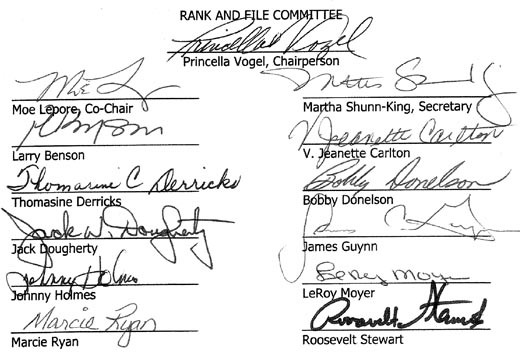 RANK AND FILE COMMITTEE
Princella Vogel
Princella Vogel, Chairperson
Moe L
Moe Lepore, Co-Chair
Martha Shunn-King, Secretary
Larry Benson
V. Jeanette Carlton
V. Jeanette Carlton
Thomasine C Derricks
Thomasine Derricks
Bobby Donelson
Bobby Donelson
Jack W. Dougherty
Jack Dougherty
James Guynn
Johnny Holmes
Johnny Holmes
LeRoy Moyer
LeRoy Moyer
Marcie Ryan
Marcie Ryan
Roosevelt Stewart
Roosevelt Stewart